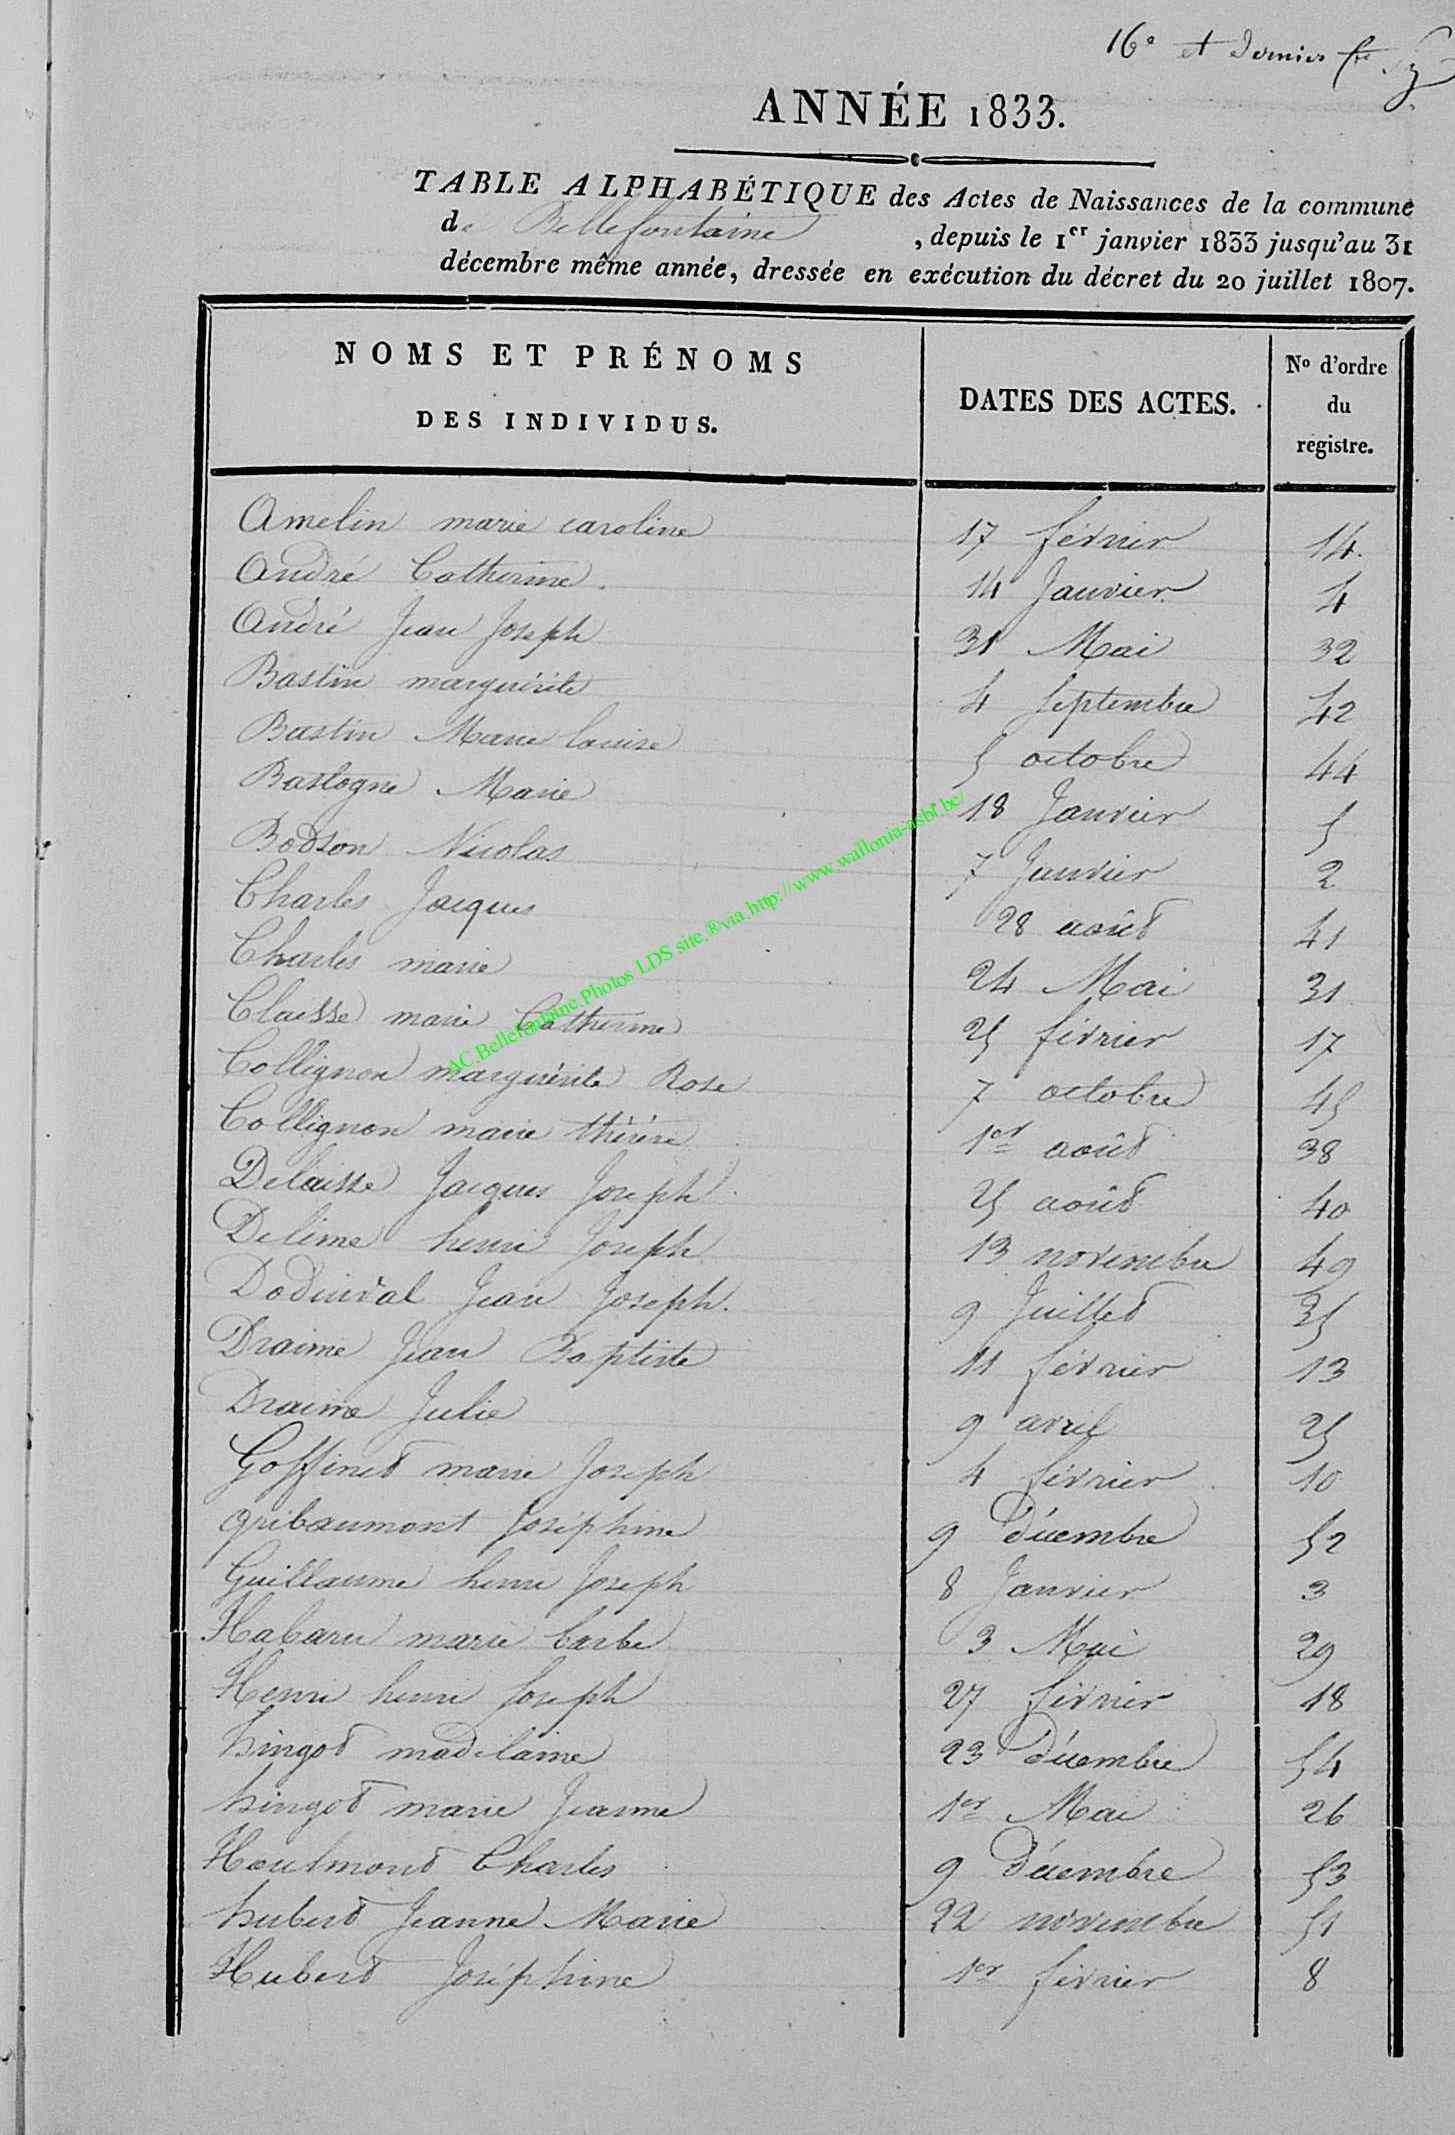 16e et dernier
ANNÉE 1833.
TABLE ALPHABÉTIQUE des Actes de Naissances de la commune
de Bellefontaine , depuis le 1er janvier 1833 jusqu'au 31
décembre même année, dressée en exécution du décret du 20 juillet 1807.
NOMS ET PRÉNOMS
DES INDIVIDUS.
DATES DES ACTES.
No d'ordre
du
registre.
Amelin marie caroline 17 février 14.
André Catherine. 14 Janvier 4
André Jean Joseph 31 Mai 32
Bastin marguérite 4 Septembre 42
Bastin Marie louise 5 octobre 44
Bastogne Marie 18 Janvier 5
Bodson Nicolas 7 Janvier 2
Charles Jacques 28 août 41
Charles marie 24 Mai 31
Claisse marie Catherine 25 février 17
Collignon marguérite Rose 7 octobre 45
Collignon marie thérèse 1er août 38
Delaisse Jacques Joseph 25 août 40
Delime henri Joseph 13 novembre 49
Dodinval Jean Joseph. 9 Juillet 35
Draime Jean Baptiste 11 février 13
Draime Julie 9 avril 25
Goffinet marie Joseph 4 février 10
Gribaumont Joséphine 9 Décembre 52
Guillaume henri Joseph 8 Janvier 3
Habaru marie barbe 3 Mai 29
Henri henri Joseph 27 février 18
hingot madelaine 23 Décembre 54
hingot marie Jeanne 1er Mai 26
Houlmont Charles 9 Décembre 53
hubert Jeanne Marie 22 novembre 51
Hubert Joséphine 1er février 8
AC.Bellefontaine.Photos LDS site.®via.http://www.wallonia-asbl.be/